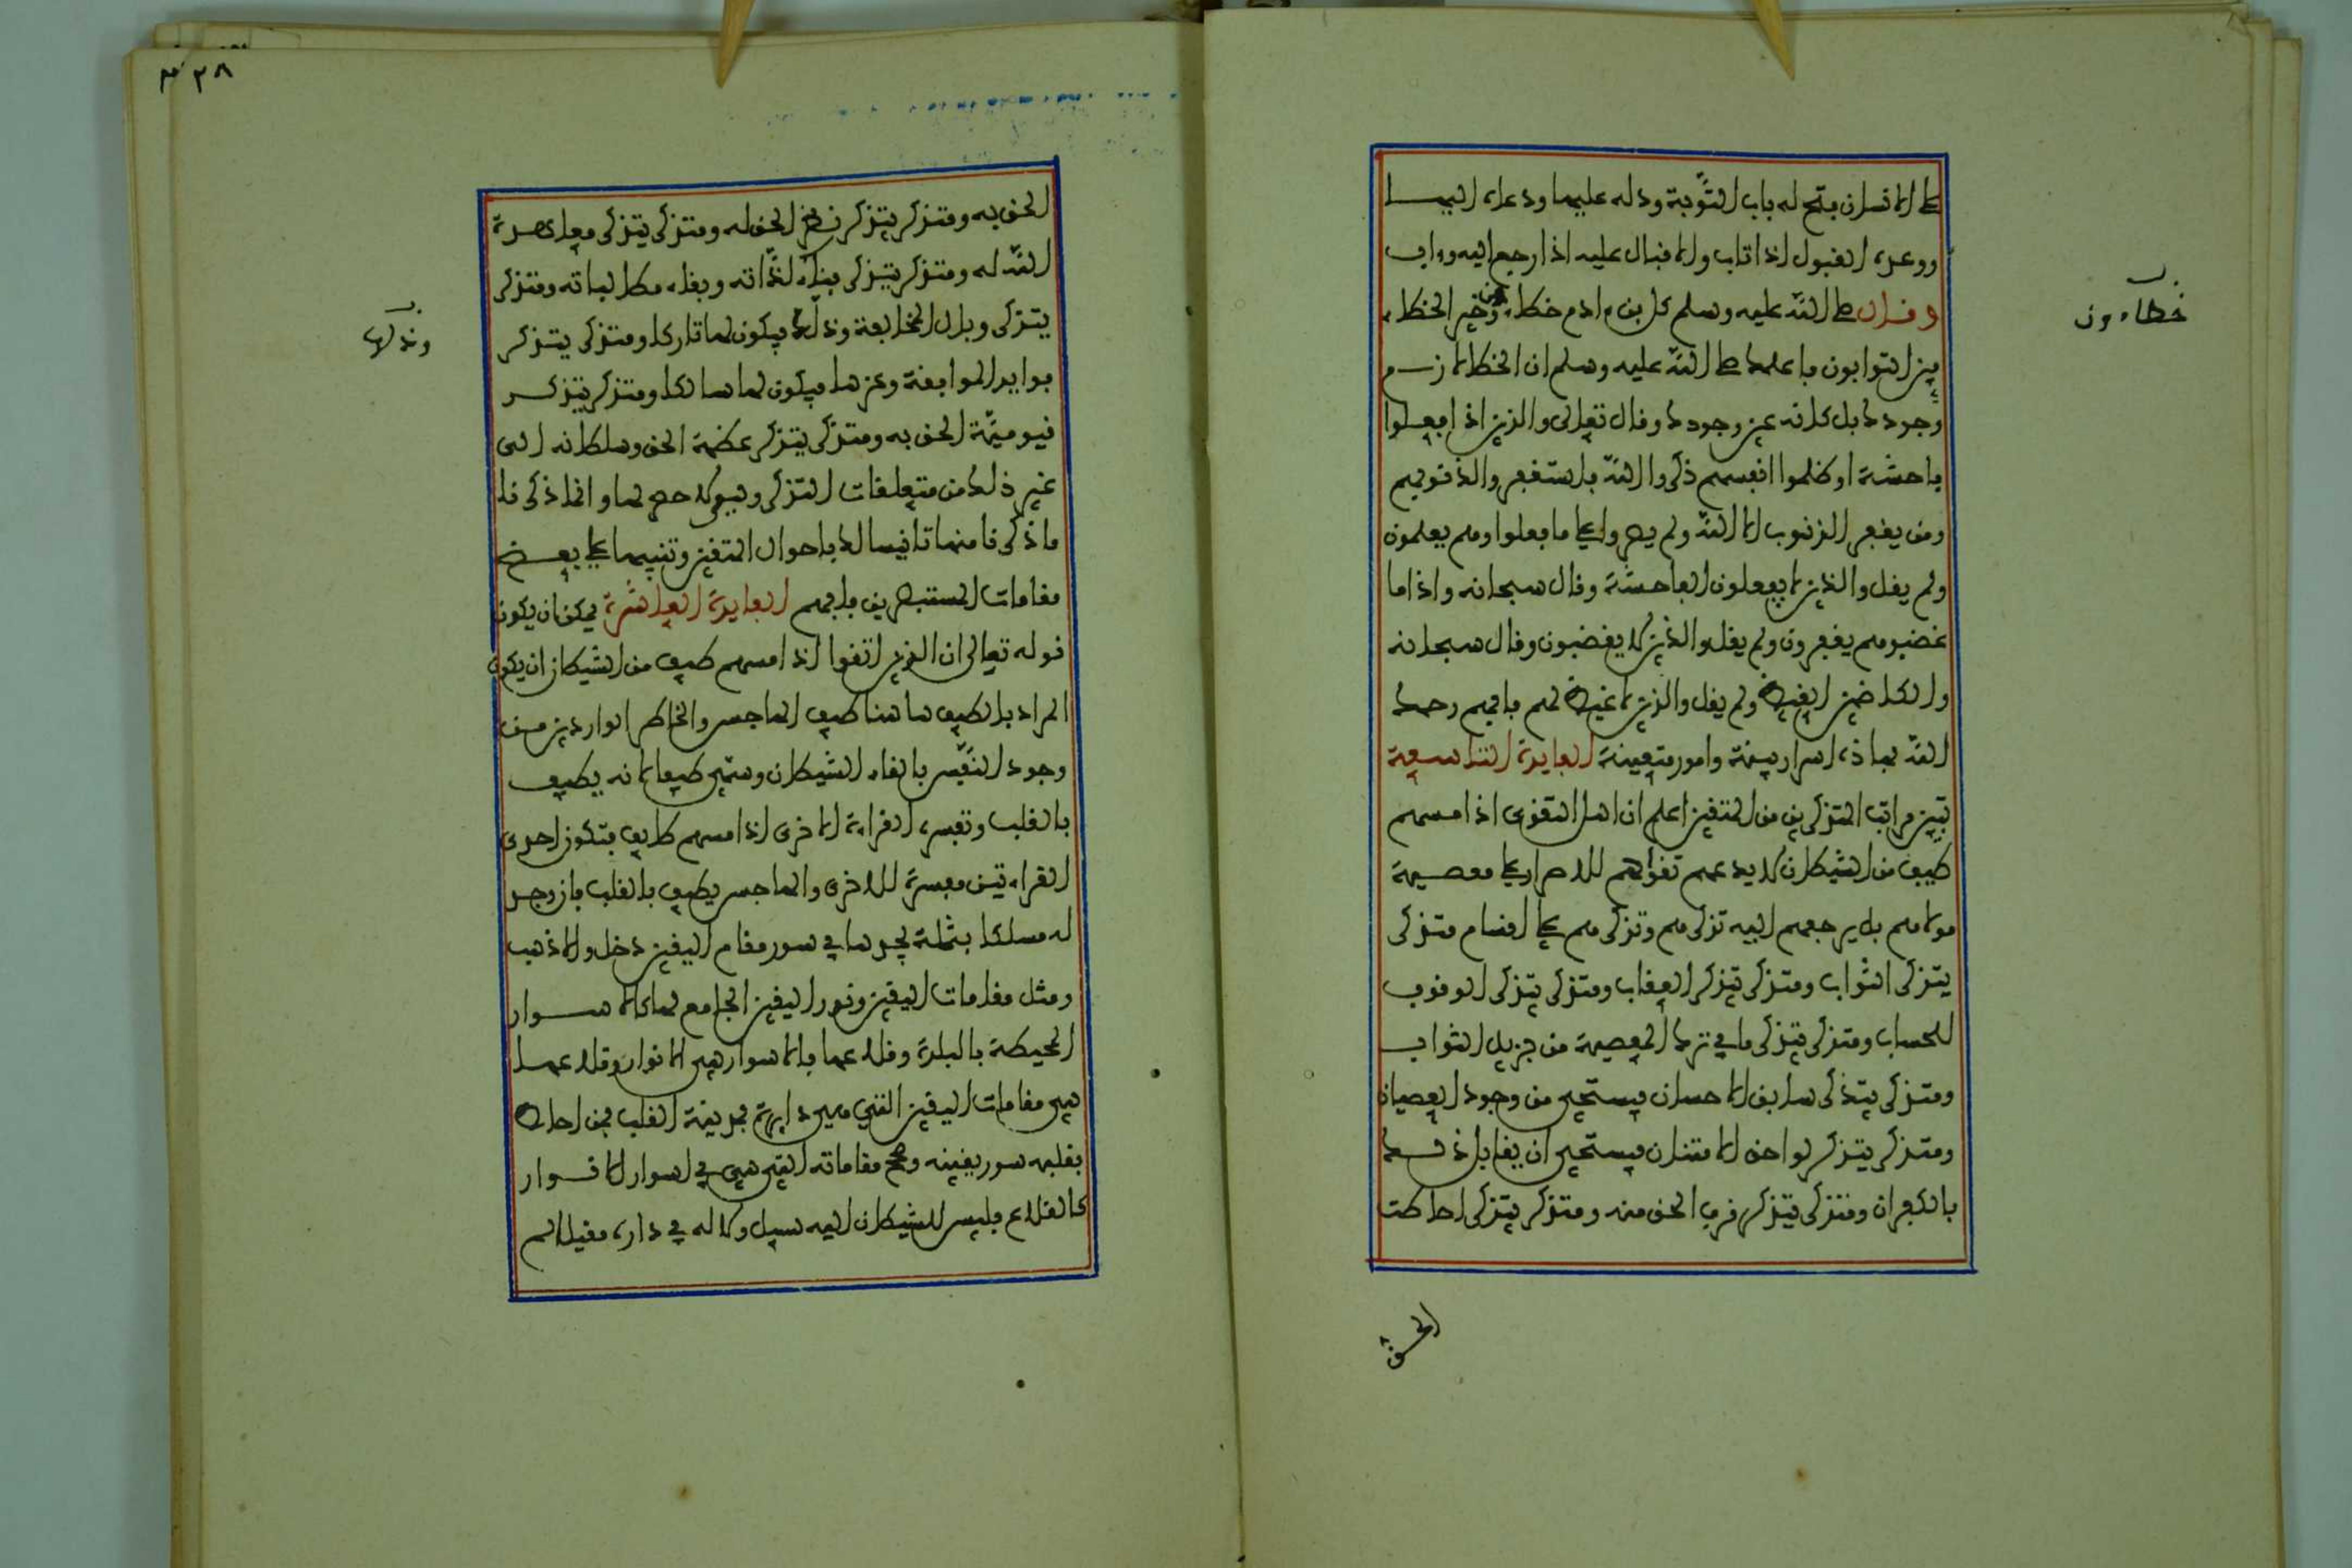 على الانسان بفتح له باب التوبة ودله عليها ودعاه اليها
ووعده القبول اذا تاب والاقبال عليه اذا رجع اليه وءاب
وقال صلى الله عليه وسلم كل بنى ءادم خطاء وخير الخطاء
ين التوابون فاعلمك صلى الله عليه وسلم ان الخطا لازم
وجودك بل كانه عين وجودك وقال تعالى والذين اذا فعلوا
فاحشة او ظلموا انفسهم ذكروا الله فاستغفروا لذنوبهم
ومن يغفر الذنوب الا الله ولم يصروا على ما فعلوا وهم يعلمون
ولم يقل والذين لا يفعلون الفاحشة وقال سبحانه واذا ما
غضبوا هم يغفرون ولم يقل والذين لا يغضبون وقال سبحانه
والكاظمين الغيظ ولم يقل والذين لا غيظ لهم فافهم رحمك
الله فهاذه اسرار بينة وامور متعينة الفايدة التاسعة
تبيين مراتب المتذكرين من المتقين اعلم ان اهل التقوى اذا مسهم
طيف من الشيطان لا يدعهم تقواهم للاصرار على معصية
مولاهم بل يرجعهم اليه تذكرهم وتذكرهم على اقسام متذكر
يتذكر الثواب ومتذكر يتذكر العقاب ومتذكر يتذكر الوقوف
للحساب ومتذكر يتذكر ما في ترك المعصية من جزيل الثواب
ومتذكر يتذكر سابق الاحسان فيستحيى من وجود العصيان
ومتذكر يتذكر لواحق الامتنان فيستحيى ان يقابل ذلك
بالكفران ومتذكر يتذكر قرب الحق منه ومتذكر يتذكر احاطت
الحق
خطاءون
٢٨
الحق به ومتذكر يتذكر نظر الحق له ومتذكر يتذكر معاهدة
الله له ومتذكر يتذكر فناء لذاته وبقاء مطالباته ومتذكر
يتذكر وبال المخالفة وذلها فيكون لها تاركا ومتذكر يتذكر
فوايد الموافقة وعزها فيكون لها سالكا ومتذكر يتذكر
قيومية الحق به ومتذكر يتذكر عظمة الحق وسلطانه الى
غير ذلك من متعلقات التذكر وهو لا حصر لها وانما ذكرنا
ما ذكرنا منها تانيسا لك باحوال المتقين وتنبيها على بعض
مقامات المستبصرين فافهم الفايدة العاشرة يمكن ان يكون
قوله تعالى ان الذين اتقوا اذا مسهم طيف من الشيطان ان يكون
المراد بالطيف هاهنا طيف الهاجس والخاطر الواردين من
وجود النفس بالقاء الشيطان وسمى طيفا لانه يطيف
بالقلب وتفسره القراءة الاخرى اذا مسهم طايف فتكون احدى
القراءتين مفسرة للاخرى والهاجس يطيف بالقلب فان وجد
له مسلكا بثلمة يجدها في سور مقام اليقين دخل والا ذهب
ومثل مقامات اليقين ونور اليقين الجامع لها كالاسوار
المحيطة بالبلدة وقلاعها فالاسوار هي الانوار وقلاعها
هي مقامات اليقين التى هي دايرة بمدينة القلب فمن احاط
بقلبه سور يقينه وصحح مقاماته التي هي في اسوار الانوار
كالقلاع فليس للشيطان اليه سبيل ولا له في داره مقيل الم
وذلها